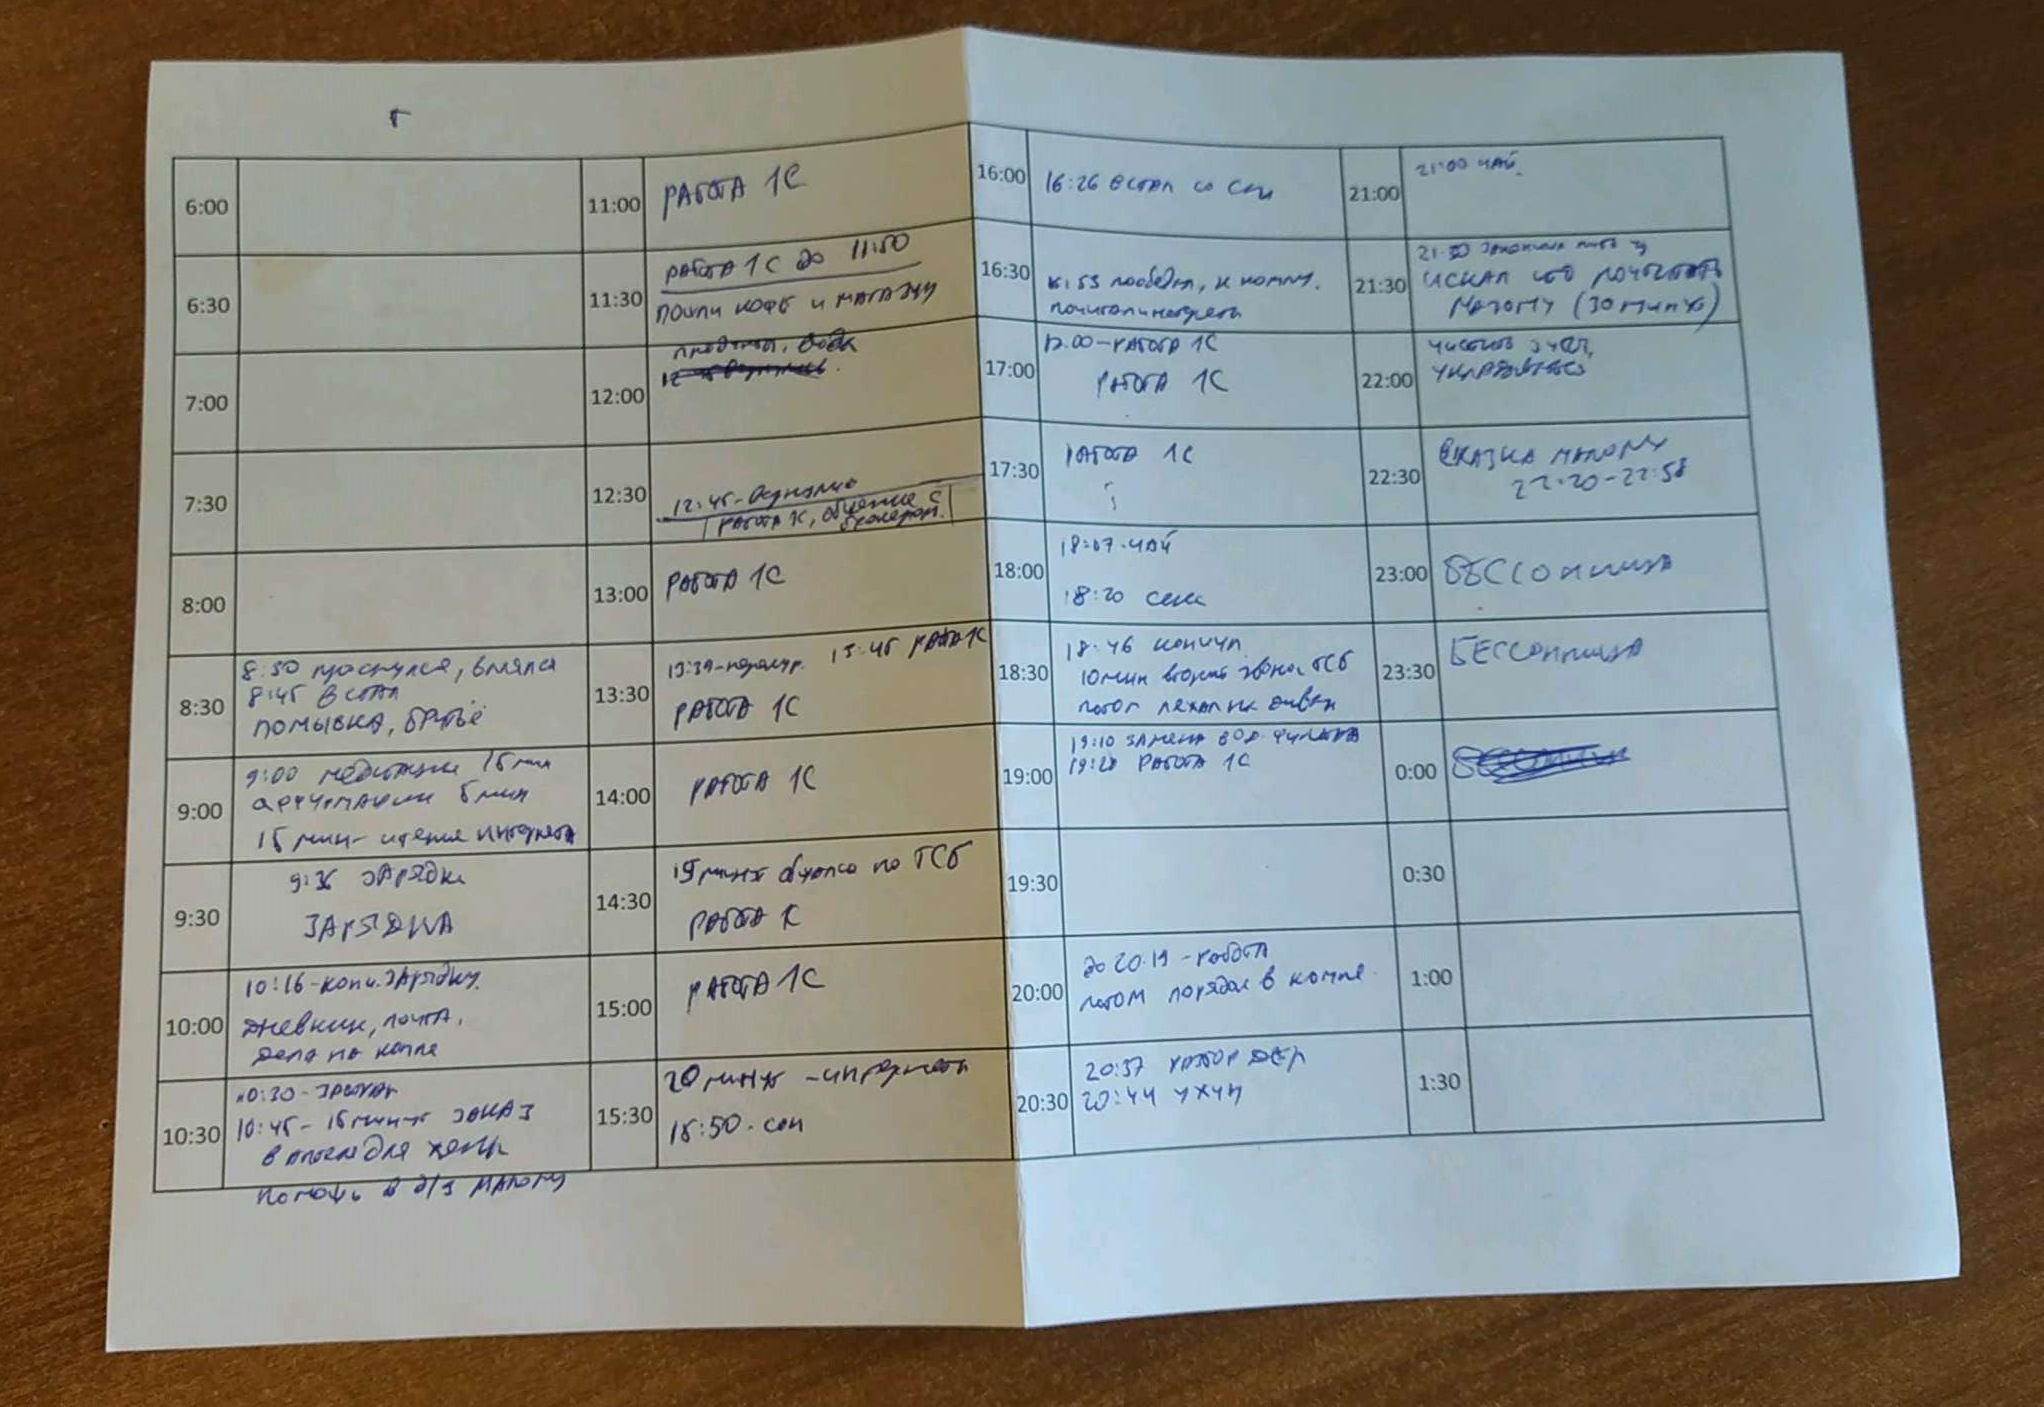 6:00
6:30
7:00
7:30
8:00
8:30
8:30 проснулся, валялся
8:45 встал
помывка, бритьё
9:00
9:00 медитация 15 мин
5 мин
15 мин - чтение интернета
9:30
9:36 зарядка
ЗАРЯДКА
10:00
10:16 - конч. зарядку.
дневник, почта,
дела на компе
10:30
10:30 - завтрак
10:45 - 15 минут заказ
в для
помощь в д/з малому
11:00
РАБОТА 1С
11:30
РАБОТА 1С до 11:50
попили кофе и магазин
12:00
продукты, вода
12:30
12:45 - вернулись
РАБОТА 1С, общение с
брокером.
13:00
РАБОТА 1С
13:30
13:39 - перекур. 13:45 РАБОТА 1С
РАБОТА 1С
14:00
РАБОТА 1С
14:30
15 минут по ТСБ
РАБОТА 1С
15:00
РАБОТА 1С
15:30
20 минут - интернет
15:50 - сон
16:00
16:26 встал со сна
16:30
16:53 пообедал, к комп.
почитал интернет
17:00
17:00 - РАБОТА 1С
РАБОТА 1С
17:30
РАБОТА 1С
18:00
18:07 - чай
18:20 секс
18:30
18:46 кончил
10 мин звонил ТСБ
потом лежал на диване
19:00
19:10 замена вод. фильтра
19:20 РАБОТА 1С
19:30
20:00
до 20:19 - работа
потом порядок в компе
20:30
20:37
20:44 ужин
21:00
21:00 чай.
21:30
21:30 закончил пить чай
искал что почитать
малому (30 минут)
22:00
чистить зубы,
укладываться
22:30
сказка малому
22:20-22:58
23:00
БЕССОННИЦА
23:30
БЕССОННИЦА
0:00
0:30
1:00
1:30